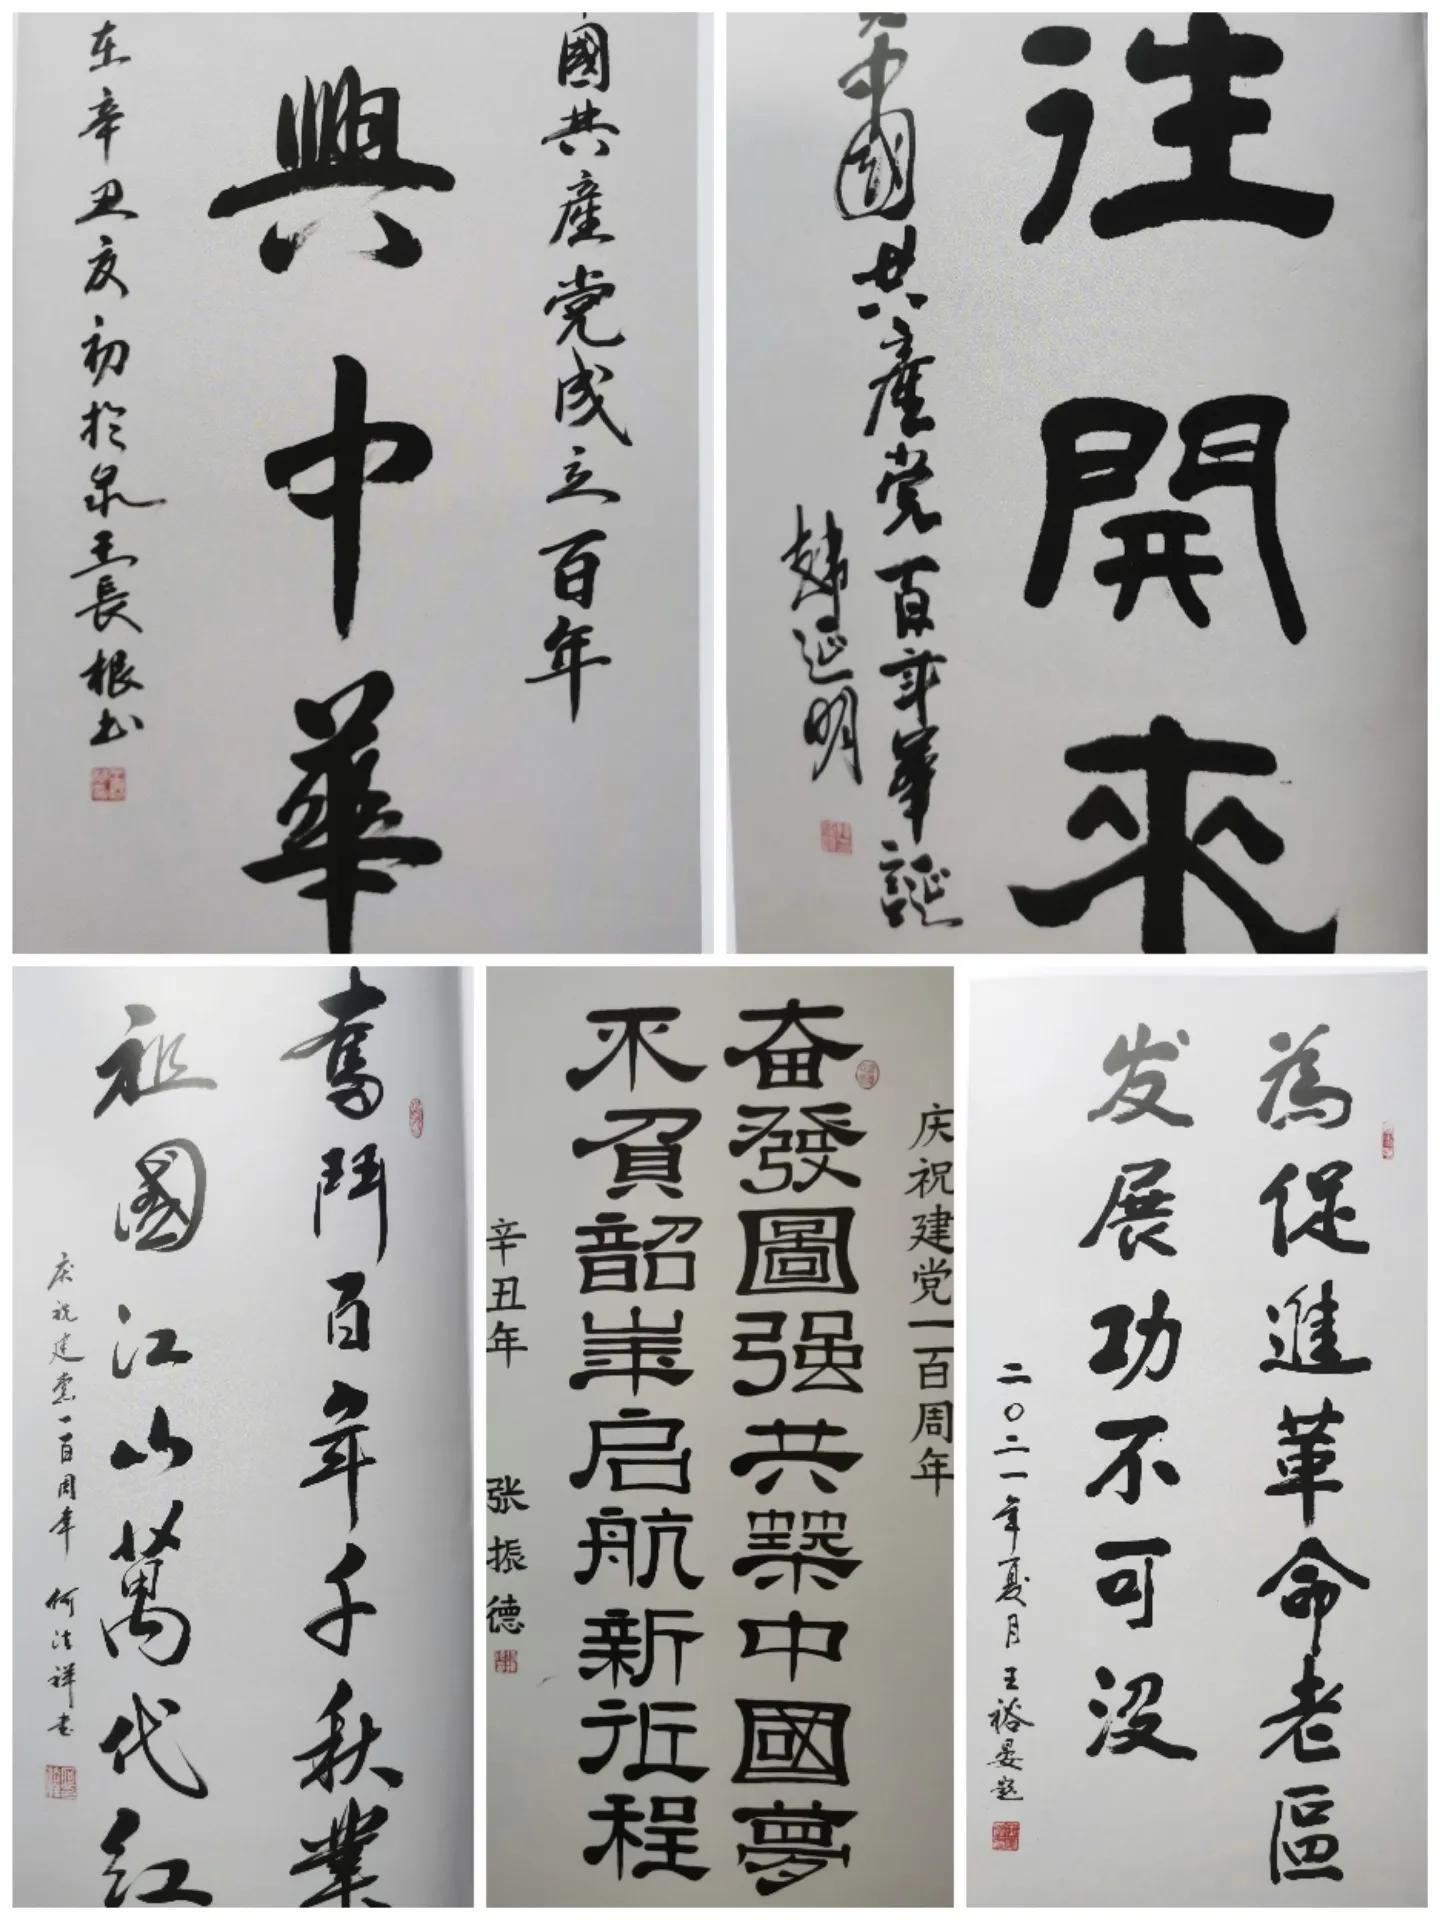 國共產党成立百年
興中華
在辛丑友初於泉王長根书
往開來
中國共產党百年華誕
趙延明
奮鬥百年千秋業
祖國江山萬代紅
庆祝建党一百周年 何法祥书
庆祝建党一百周年
奋發圖强共築中國夢
不負韶華启航新征程
辛丑年 张振德
為促進革命老區
发展功不可没
二〇二一年夏月王裕晏题